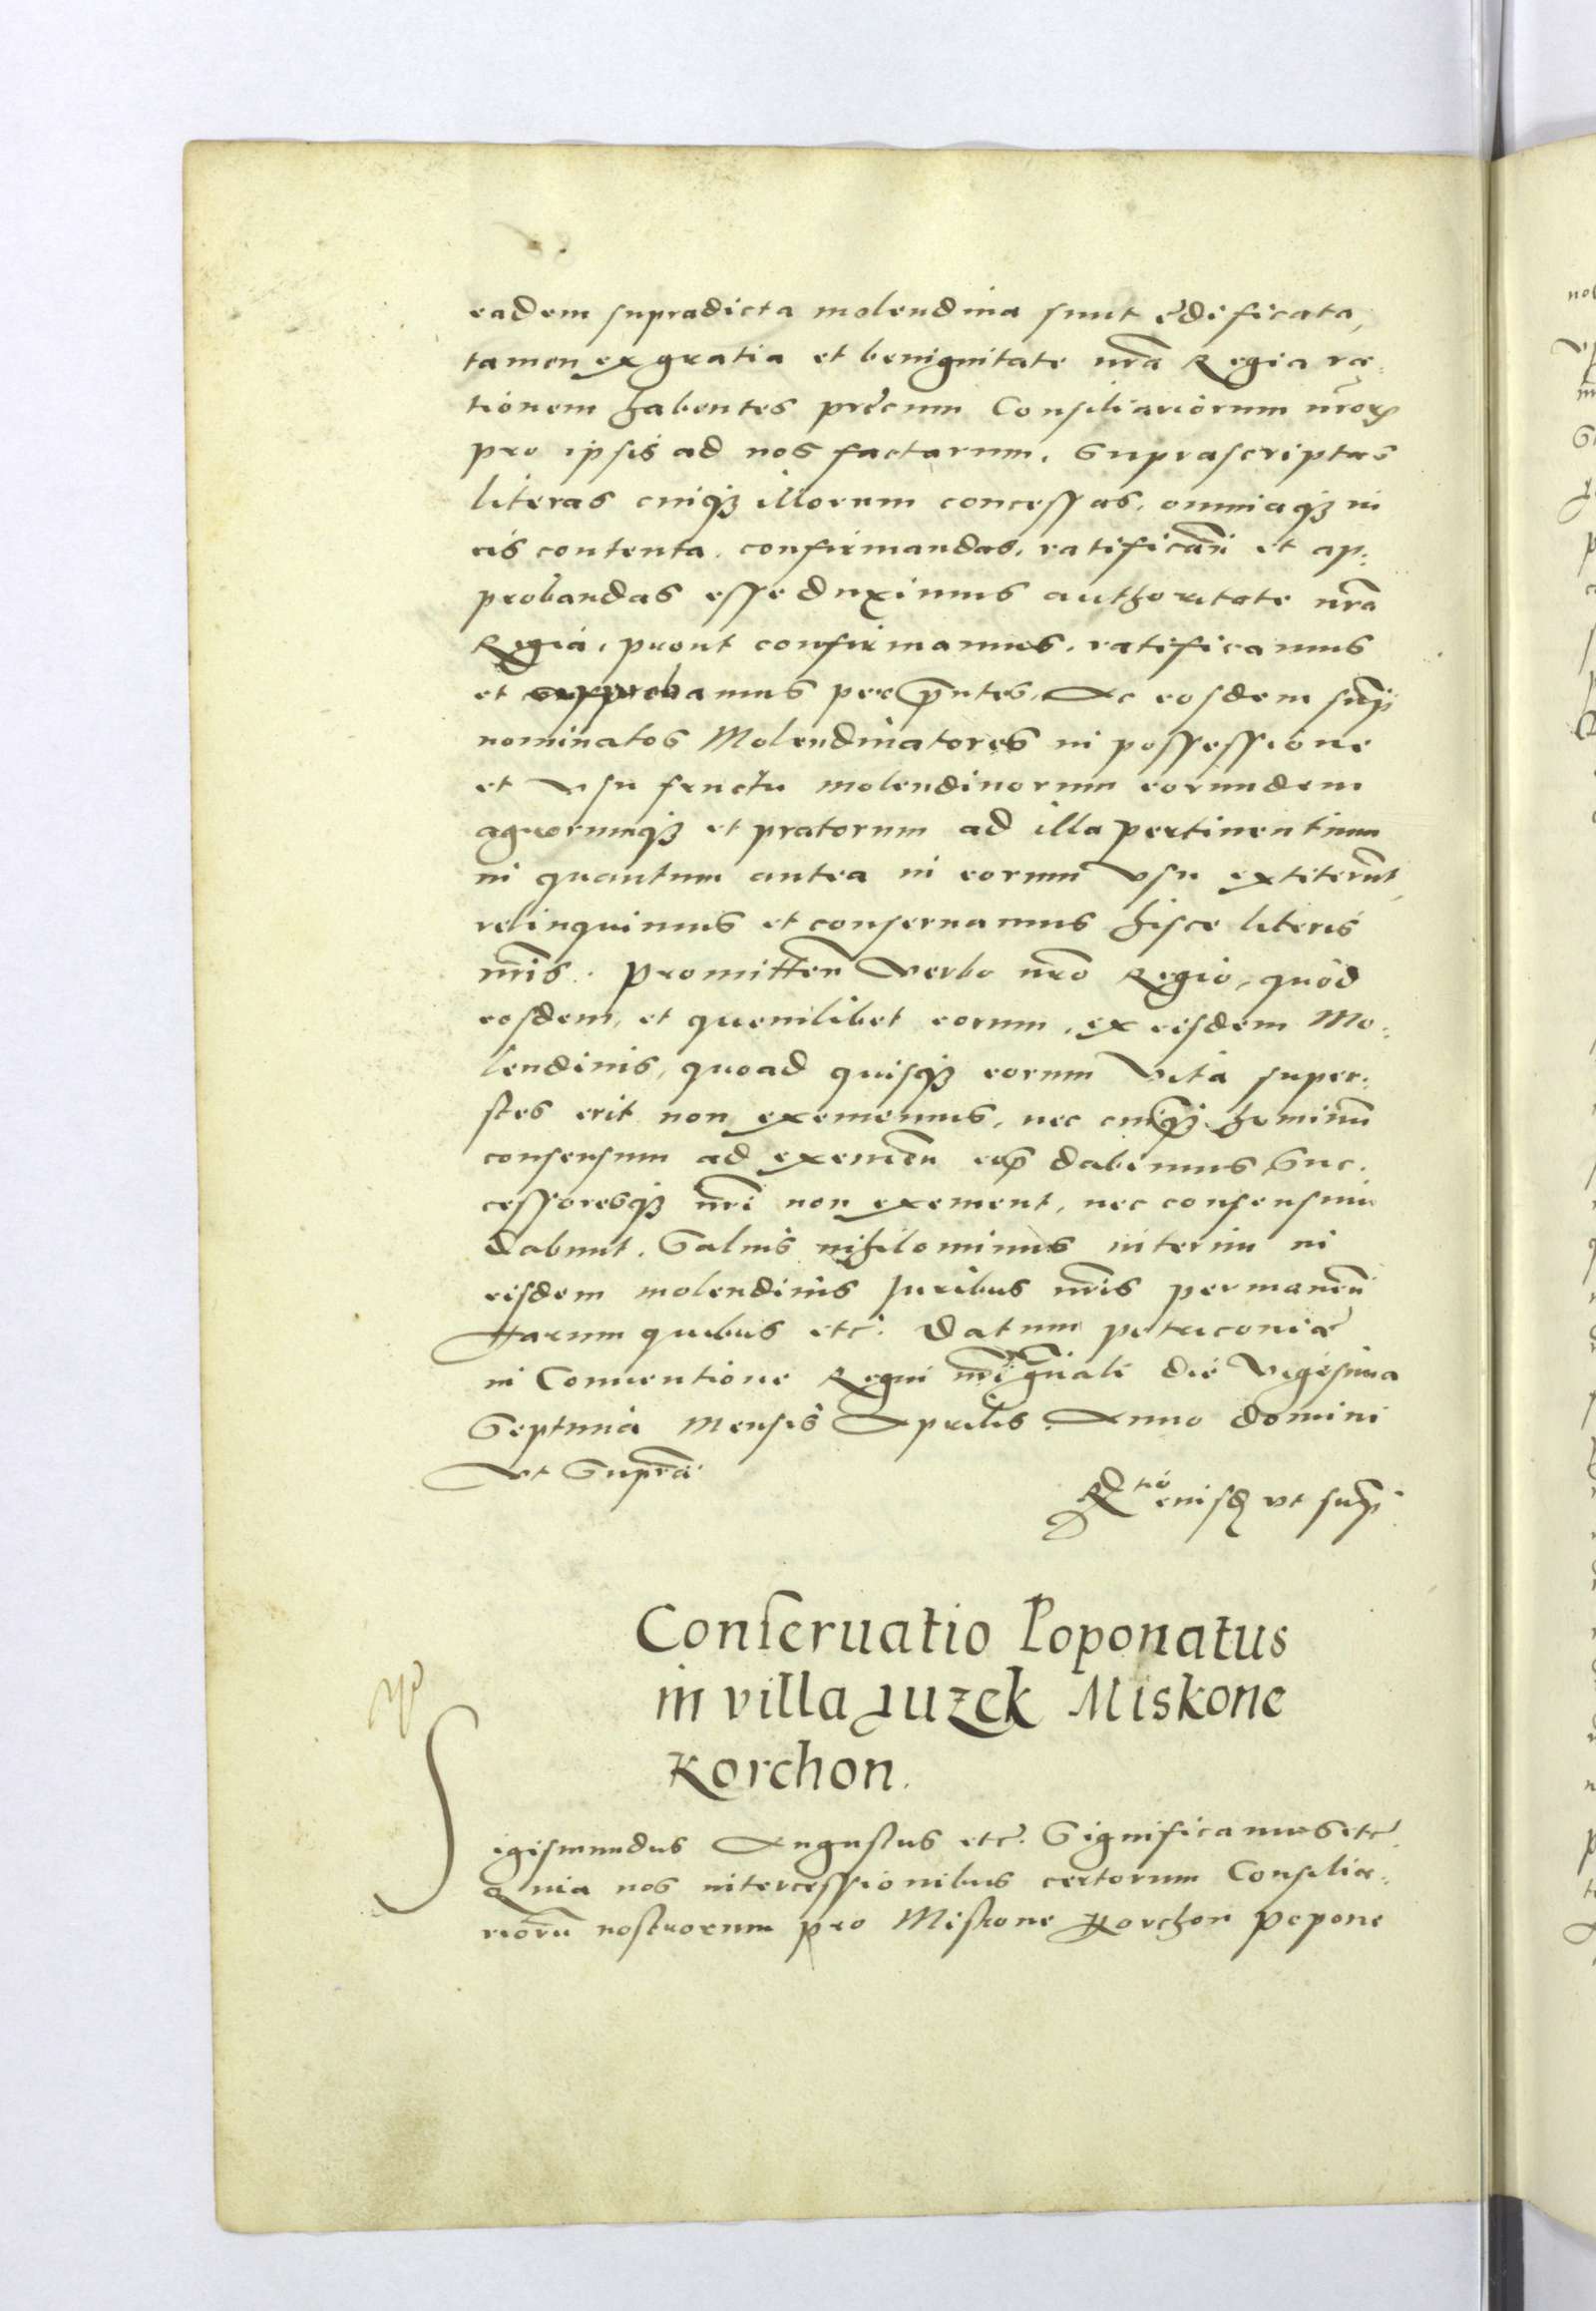 eadem supradicta molendina sunt ędificata,
tamen ex gratia et benignitate nr̃a Regia ra-
tionem habentes pręcum Consiliariorum nr̃orꝝ
pro ipsis ad nos factarum. Suprascriptas
literas cuiqꝫ illorum concessas, omniaqꝫ in
eis contenta, confirmandas, ratificañ et ap-
probandas esse duximus authoritate nr̃a
Regia, prout confirmamus, ratificamus
et approbamus per p̃ntes. Ac eosdem sup̃
nominatos Molendinatores in possessione
et vsu fructu molendinorum eorundem
agrorumqꝫ et pratorum ad illa pertinentium
in quantum antea in eorum vsu extiterũt,
relinquimus et conseruamus hisce literis
nr̃is. Promitteñ Verbo nr̃o Regio, quòd
eosdem, et quemlibet eorum, ex eisdem Mo-
lendinis, quoad quisqꝫ eorum Vita super-
stes erit non eximemus, nec cuiqꝫ hominũ
consensum ad exemeñ eosd̃ dabimus Suc-
cessoresqꝫ nr̃i non exement, nec consensum
dabunt. Saluis nihilominus interim in
eisdem molendinis Juribus nr̃is permaneñ
Harum quibus etc̃. Datum petriconiæ
in Conuentione Regni nr̃i gñali die Vigesima
Septima Mensis Aprilis. Anno Domini
Vt Supra
Rtio eiusd̃ vt sup̃
Conseruatio Poponatus
in villa Juzek Miskone
Korchon.
Sigismundus Augustus etc̃. Significamus etc̃.
Quia nos intercessionibus certorum Consilia-
riorũ nostrorum pro Miskone Korchon popone